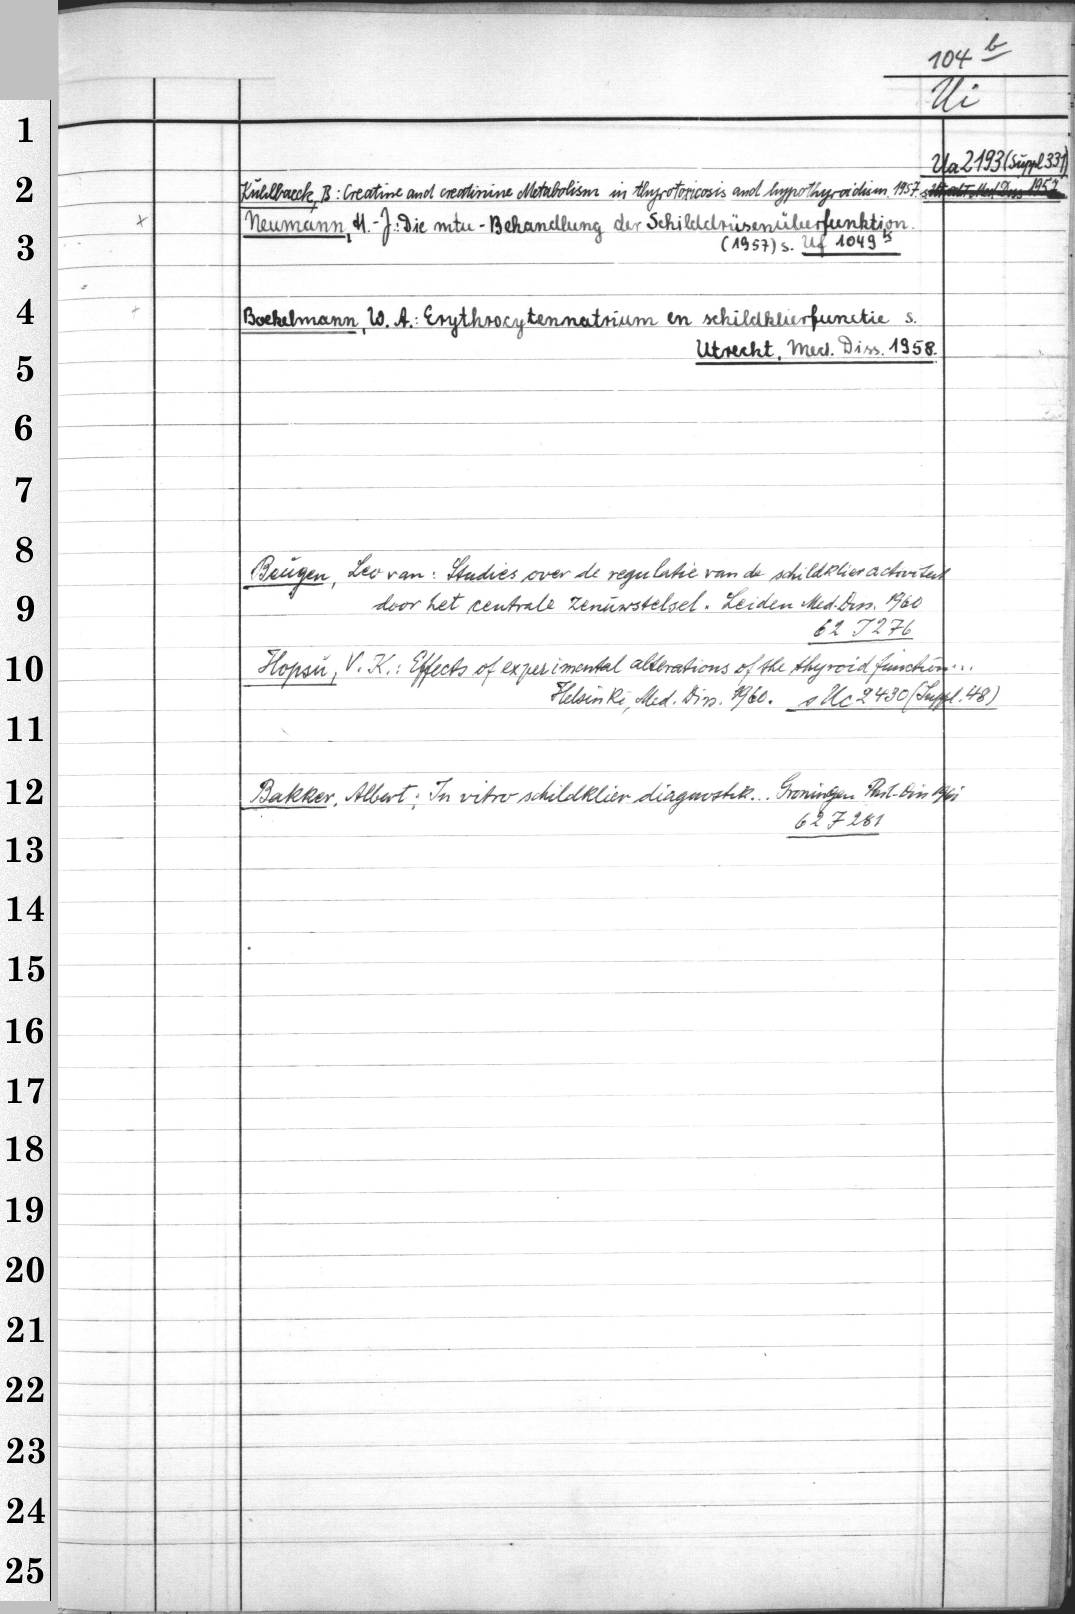 104 b
Ui
1
Ua 2193 (Suppl 331)
2
Kühlbaeck, B: Creatine and creatinine Metabolism in thyrotoxicosis and hypothyroidism. 1957.
Neumann, H.-J.: Die mtu-Behandlung der Schilddrüsenüberfunktion.
3
(1957) s. Uf 1049 b
4
Boekelmann, W. A.: Erythrocytennatrium en schildklierfunctie s.
Utrecht, Med. Diss. 1958.
5
6
7
8
Beugen, Leo van: Studies over de regulatie van de schildklieractiviteit
9
door het centrale zenuwstelsel. Leiden Med. Diss. 1960
62 J 276
10
Hopsu, V. K.: Effects of experimental alterations of the thyroid function...
Helsinki, Med. Diss. 1960. s Uc 2430 (Suppl. 48)
11
12
Bakker, Albert: In vitro schildklier diagnostik... Groningen Diss 1961
62 J 281
13
14
15
16
17
18
19
20
21
22
23
24
25